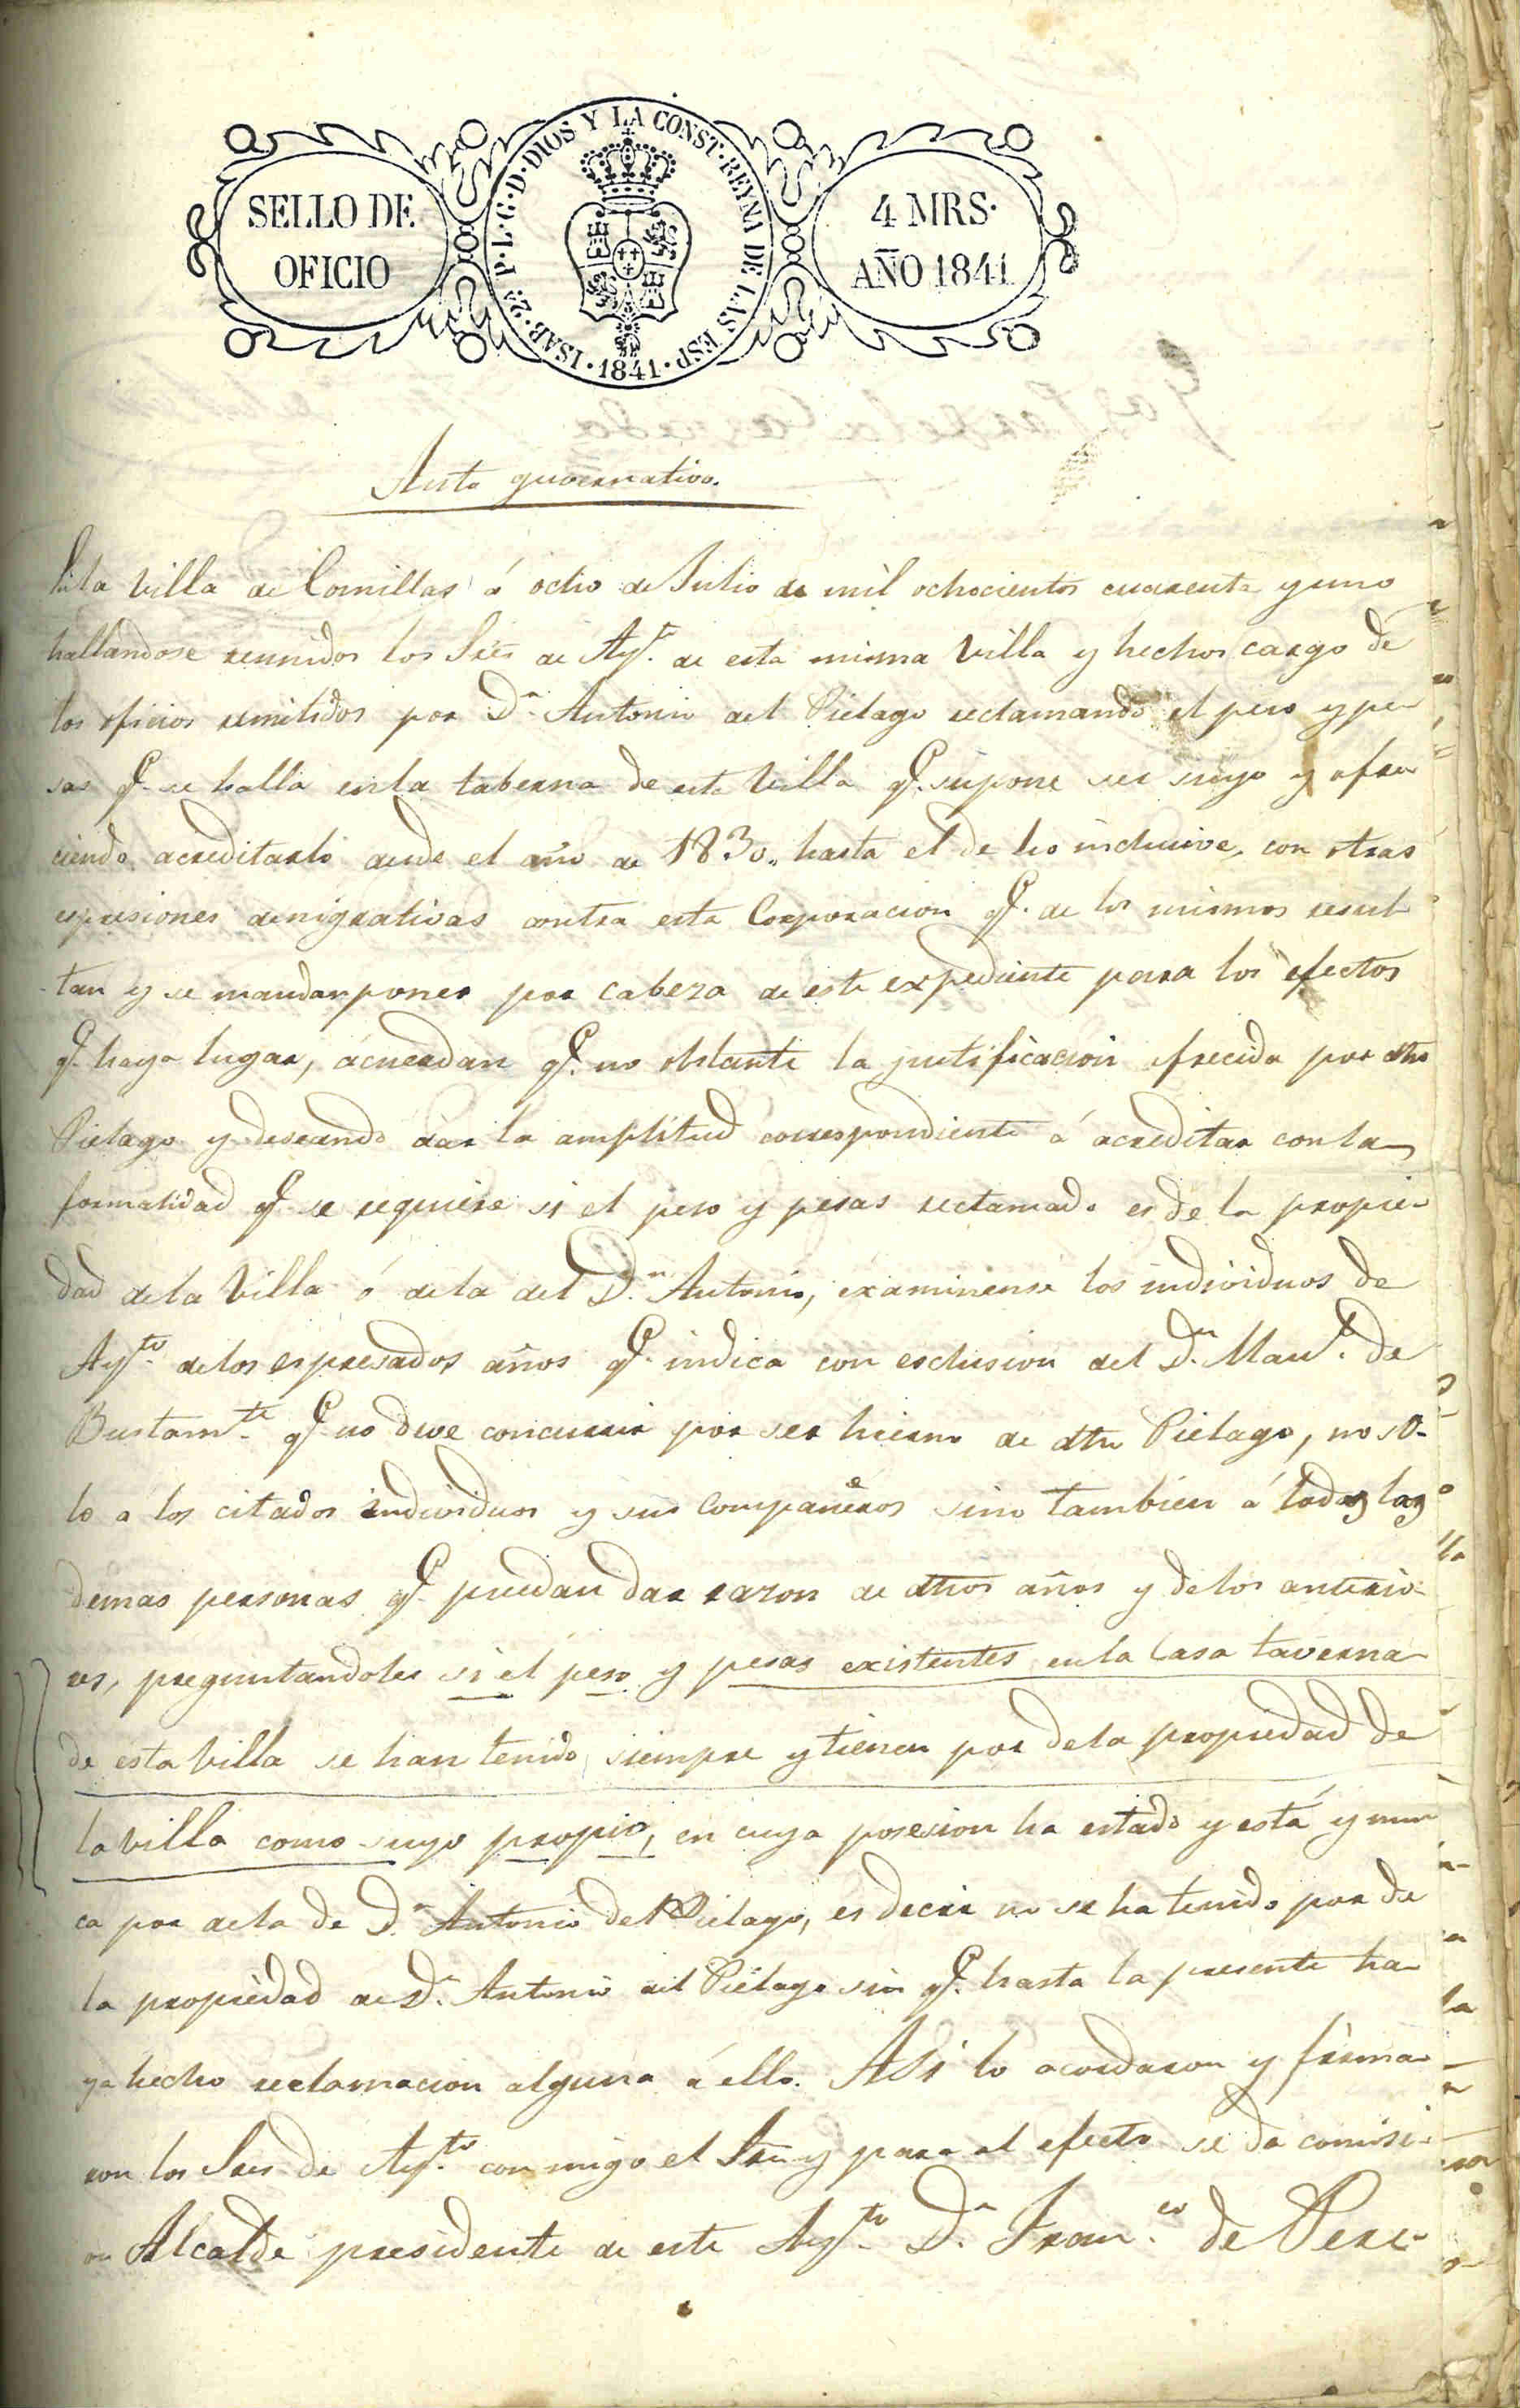 SELLO DE
OFICIO
ISAB. 2ª P. L. G. D. DIOS Y LA CONST. REYNA DE LAS ESP.
1841
4 MRS.
AÑO 1841
Auto guvernativo.
En la Villa de Comillas á ocho de Julio de mil ochocientos cuarenta y uno
hallandose reunidos los Sres de Ayto. de esta misma Villa y hechos cargo de
los oficios remitidos por Dn. Antonio del Piélago reclamando el peso y pe
sas qe. se halla en la taberna de esta Villa qe. supone ser suyo y ofre
ciendo acreditarlo desde el año de 1830,, hasta el de 40 inclusive, con otras
espresiones denigrativas contra esta Corporacion qe. de los mismos resul
tan y se mandan poner por cabeza de este expediente para los efectos
qe. haya lugar, acuerdan qe. no obstante la justificacion ofrecida por dho
Piélago y deseando dar la amplitud correspondiente á acreditar con la
formalidad qe. se requiere si el peso y pesas reclamado es de la propie
dad de la Villa ó de la del Dn. Antonio, examinense los individuos de
Ayto. de los espresados años qe. indica con esclusion del Dn. Manl. de
Bustamte. qe. no deve concurrir por ser hierno de dho Piélago, no so-
lo a los citados individuos y sus compañeros sino tambien á todas las
demas personas qe. puedan dar razon de dhos años y de los anterio
res, preguntandoles si el peso y pesas existentes en la Casa taverna
de esta Villa se han tenido siempre y tienen por de la propiedad de
la villa como suyo propio, en cuya posesion ha estado y está y nun
ca por de la de Dn. Antonio del Piélago, es decir no se ha tenido por de
la propiedad de Dn. Antonio del Piélago sin qe. hasta la presente ha
ya hecho reclamacion alguna á ello. Asi lo acordaron y firma
ron los Sres de Ayto. conmigo el Srio y para el efecto se da comisi
on Alcalde presidente de este Ayto. Dn. Franco. de Pere-